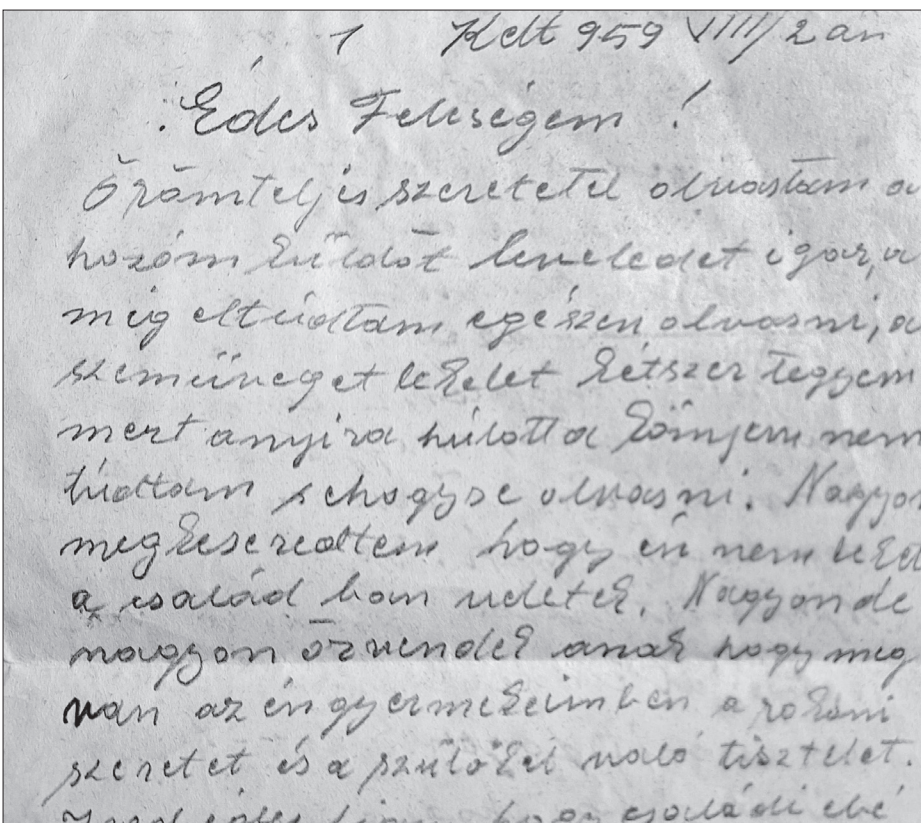 1 Kelt 959 VIIII/2 án
Édes Feleségem!
Örömteljes szeretetel olvastam a
hozám küldöt leveledet igaz, a
míg eltudtam egészen olvasni, a
szemüveget lekelet kétszer tegyem
mert anyira húlott a könjem nem
tudtam sehogyse olvasni. Nagyo
megkeseredtem hogy én nem leket
a család ban veletek. Nagyon de
nagyon örvendek anak hogy meg
van az én gyermekeimben a rokoni
szeretet és a szülőkel való tisztelet.
hogy családi ebé